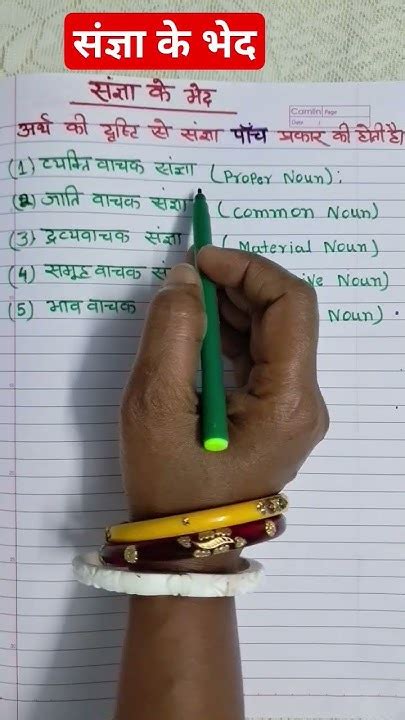 संज्ञा के भेद
संज्ञा के भेद
Camlin Page
Date /
अर्थ की दृष्टि से संज्ञा पाँच प्रकार की होती है।
(1) व्यक्ति वाचक संज्ञा (Proper Noun):
(2) जाति वाचक संज्ञा (Common Noun)
(3) द्रव्यवाचक संज्ञा (Material Noun)
(4) समूह वाचक ive Noun)
(5) भाव वाचक Noun)